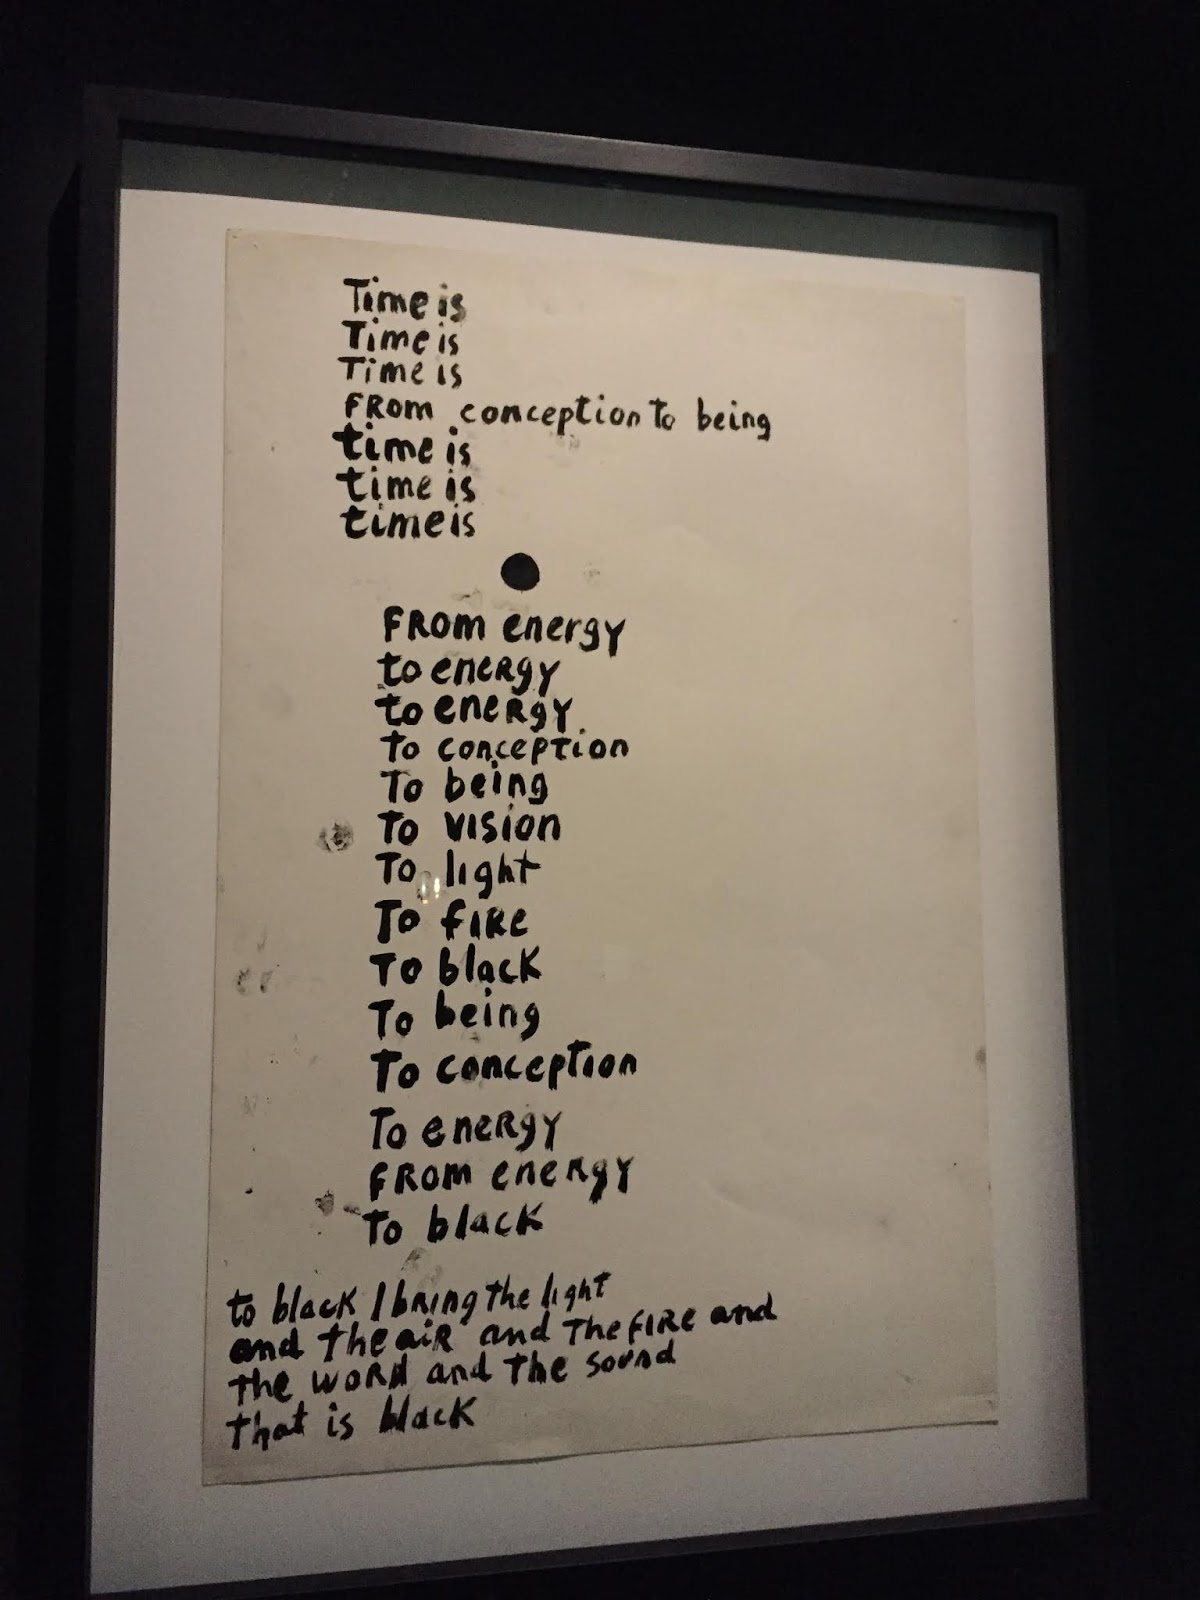 Time is
Time is
Time is
FROM conception to being
time is
time is
time is
FROM energy
to eneRgy
to eneRgy
To conception
To being
To vision
To light
To fiRe
To black
To being
To conception
To eneRgy
FROM eneRgy
To black
to black I bRing the light
and the aiR and The fiRe and
The woRd and The sound
that is black